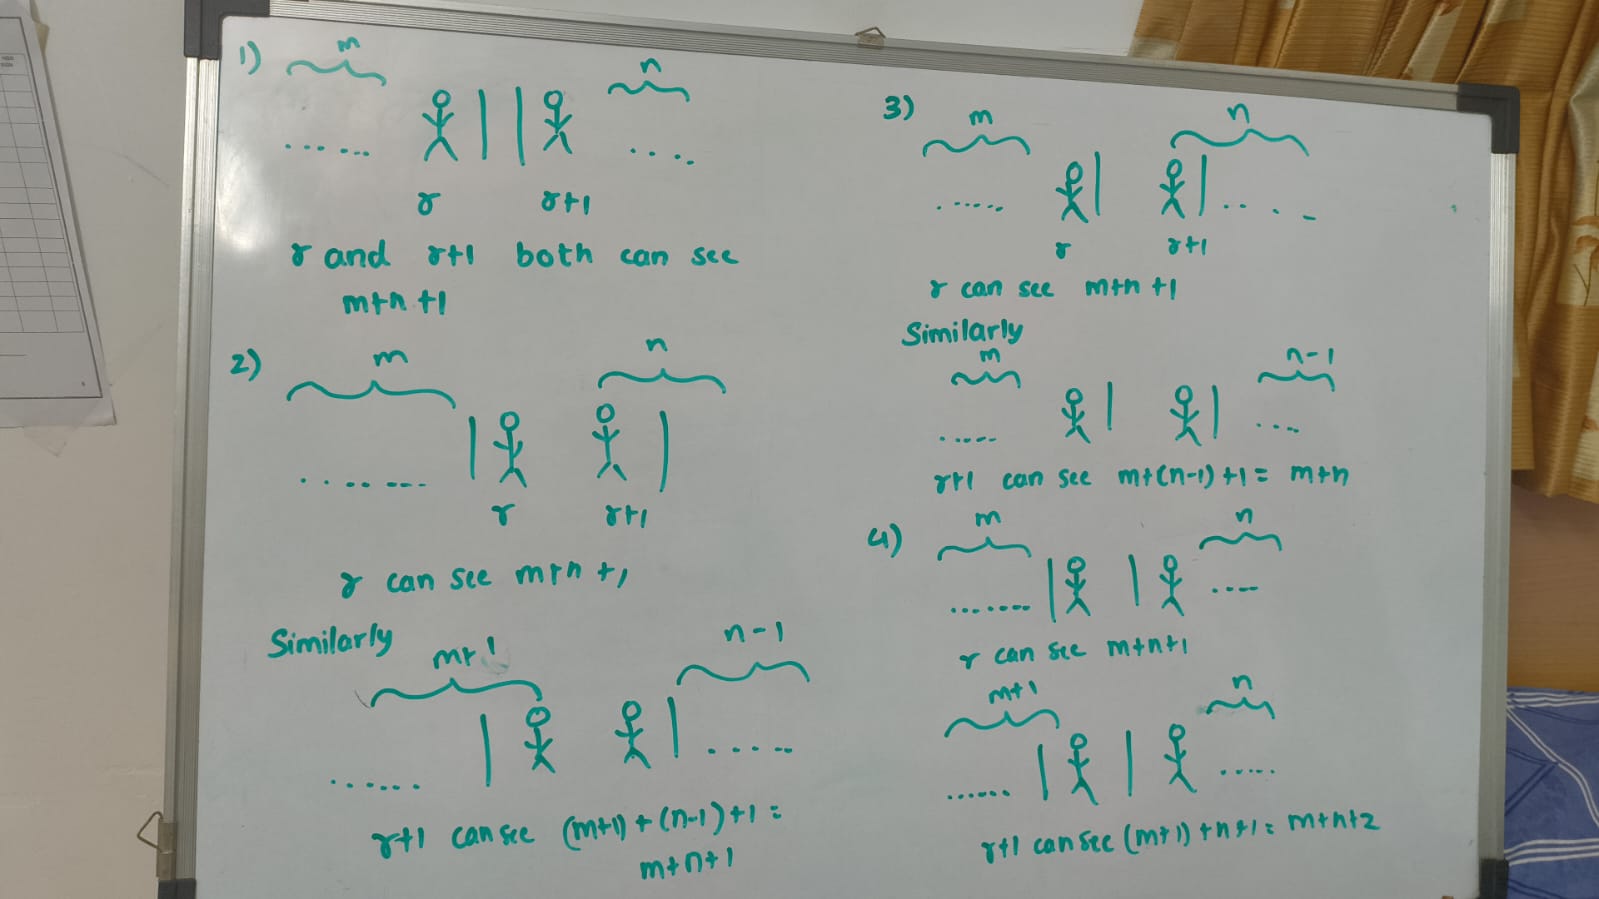 1)
m
n
r r+1
r and r+1 both can see
m+n+1
2)
m
n
r r+1
r can see m+n+1
Similarly
m+1
n-1
r+1 can see (m+1)+(n-1)+1=
m+n+1
3)
m
n
r r+1
r can see m+n+1
Similarly
m
n-1
r+1 can see m+(n-1)+1= m+n
4)
m
n
r can see m+n+1
m+1
n
r+1 can see (m+1)+n+1= m+n+2